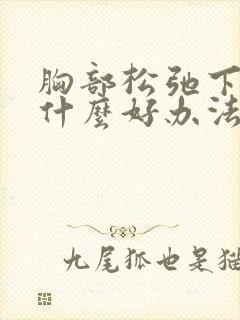 胸部松弛下
什麼好办法
九尾狐也是猫